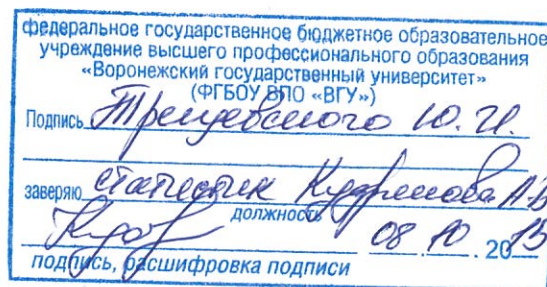 федеральное государственное бюджетное образовательное
учреждение высшего профессионального образования
«Воронежский государственный университет»
(ФГБОУ ВПО «ВГУ»)
Подпись Трещевского Ю. И.
заверяю статистик
должность
08.10.2015
подпись, расшифровка подписи